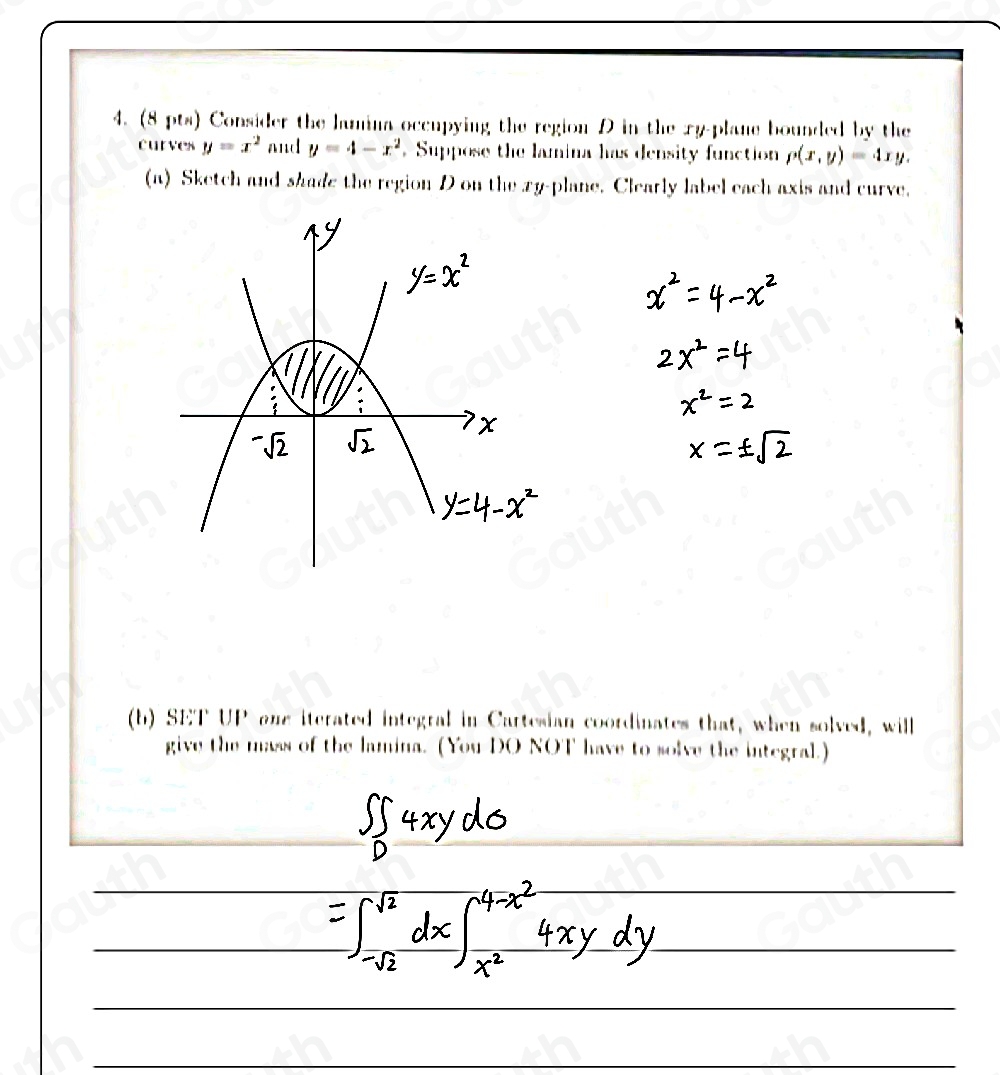 4. (8 pts) Consider the lamina occupying the region D in the xy-plane bounded by the
curves y = x² and y = 4 − x². Suppose the lamina has density function ρ(x, y) = 4xy.
(a) Sketch and shade the region D on the xy-plane. Clearly label each axis and curve.
y
y=x²
x
-√2 √2
y=4-x²
x² = 4-x²
2x² = 4
x² = 2
x = ±√2
(b) SET UP one iterated integral in Cartesian coordinates that, when solved, will
give the mass of the lamina. (You DO NOT have to solve the integral.)
∬_D 4xy dσ
= ∫_{-√2}^{√2} dx ∫_{x²}^{4-x²} 4xy dy
Gauth